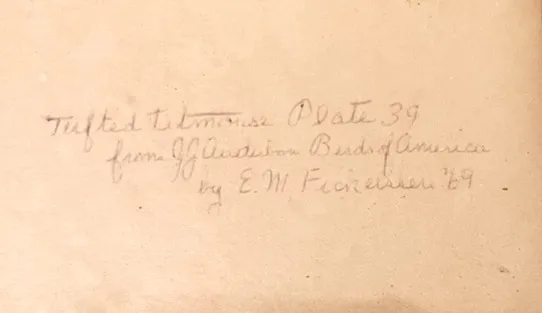 Tufted titmouse Plate 39
from JJ Audubon Birds of America
by E. M. '69